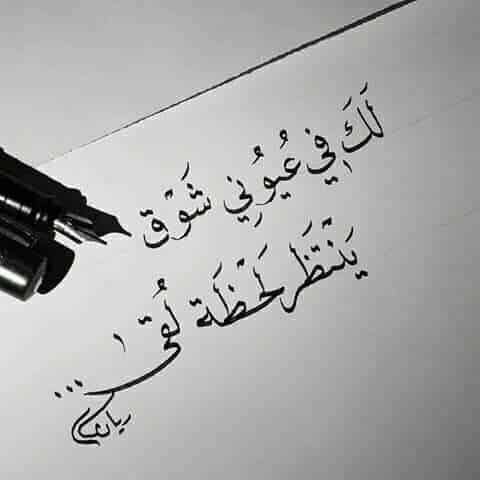 لَكَ في عُيُوني شَوْق
يَنْتَظَر لَحْظَة لُقى ...